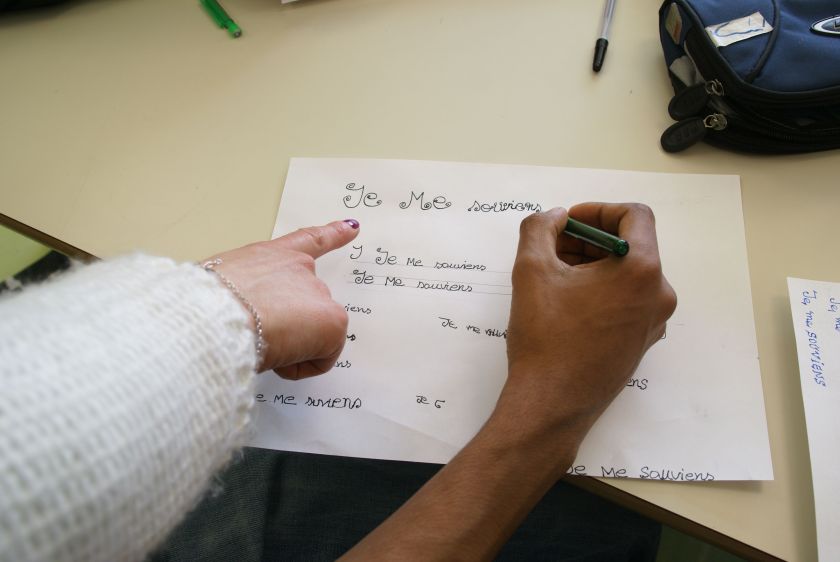 Je Me souviens
J Je Me souviens
Je Me souviens
iens
Je me
ens
e Me suviens
Je Me Sauviens
Je me souviens